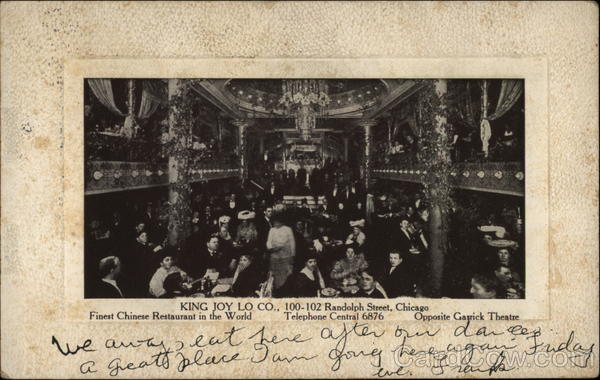 KING JOY LO CO., 100-102 Randolph Street, Chicago
Finest Chinese Restaurant in the World Telephone Central 6876 Opposite Garrick Theatre
We always eat here after our dances.
A great place I am going here again Friday
eve. Frank
CardCow.com